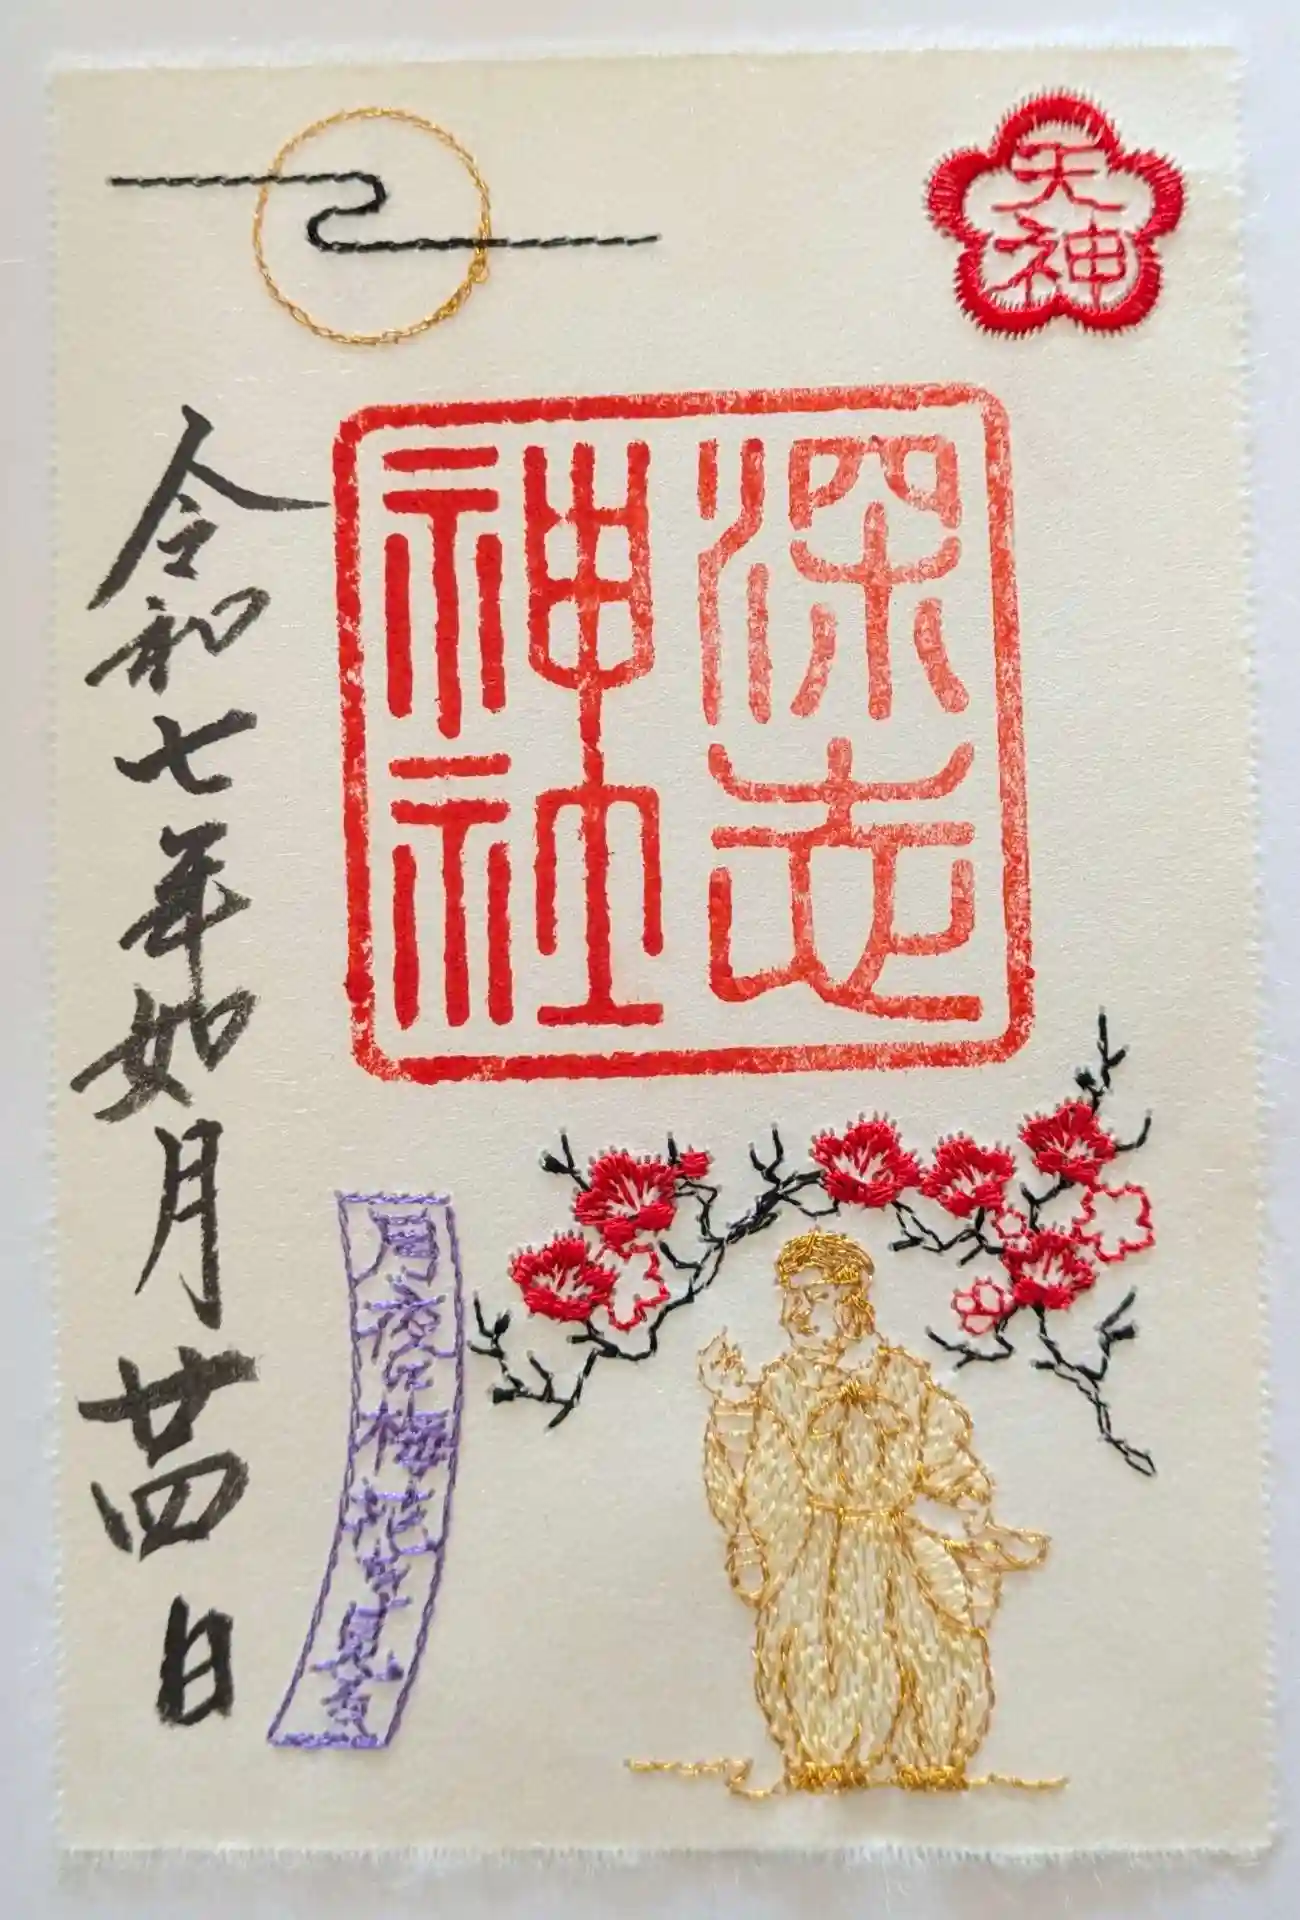 天神
深志
神社
月夜梅花見
令和七年如月廿四日